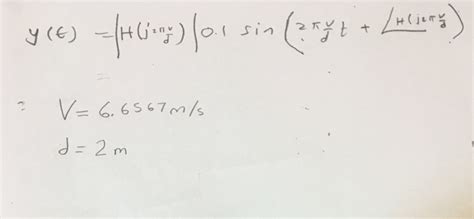 y(t) = |H(j2π v/d)| 0.1 sin (2π v/d t + ∠H(j2π v/d)
V = 6.6567 m/s
d = 2 m